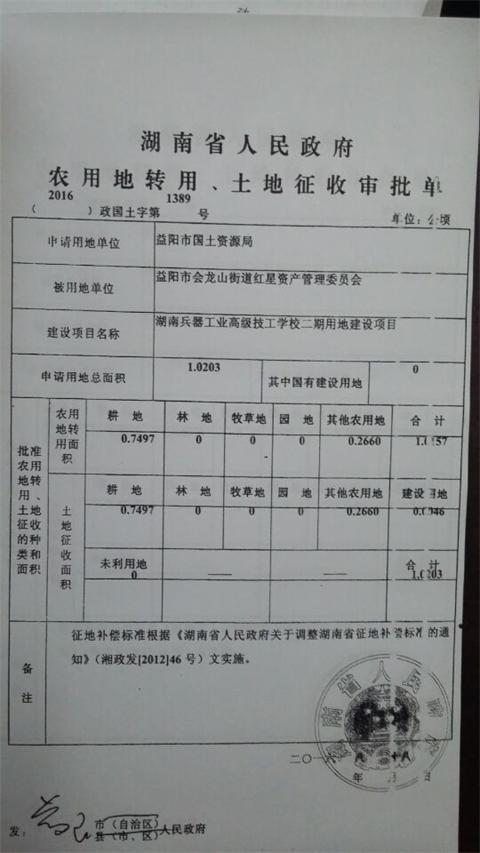 湖南省人民政府
农用地转用、土地征收审批单
（2016）政国土字第1389号
单位：公顷
申请用地单位 益阳市国土资源局
被用地单位 益阳市会龙山街道红星资产管理委员会
建设项目名称 湖南兵器工业高级技工学校二期用地建设项目
申请用地总面积 1.0203 其中国有建设用地 0
批准农用地转用、土地征收的种类和面积
农用地转用面积
耕地 林地 牧草地 园地 其他农用地 合计
0.7497 0 0 0 0.2660 1.0157
土地征收面积
耕地 林地 牧草地 园地 其他农用地 建设用地
0.7497 0 0 0 0.2660 0.0046
未利用地 合计
0 —— —— 1.0203
备注
征地补偿标准根据《湖南省人民政府关于调整湖南省征地补偿标准的通
知》（湘政发[2012]46号）文实施。
湖南省人民政府
二〇一六 八 十八
年 月 日
发： 市（自治区）
县（市、区）人民政府